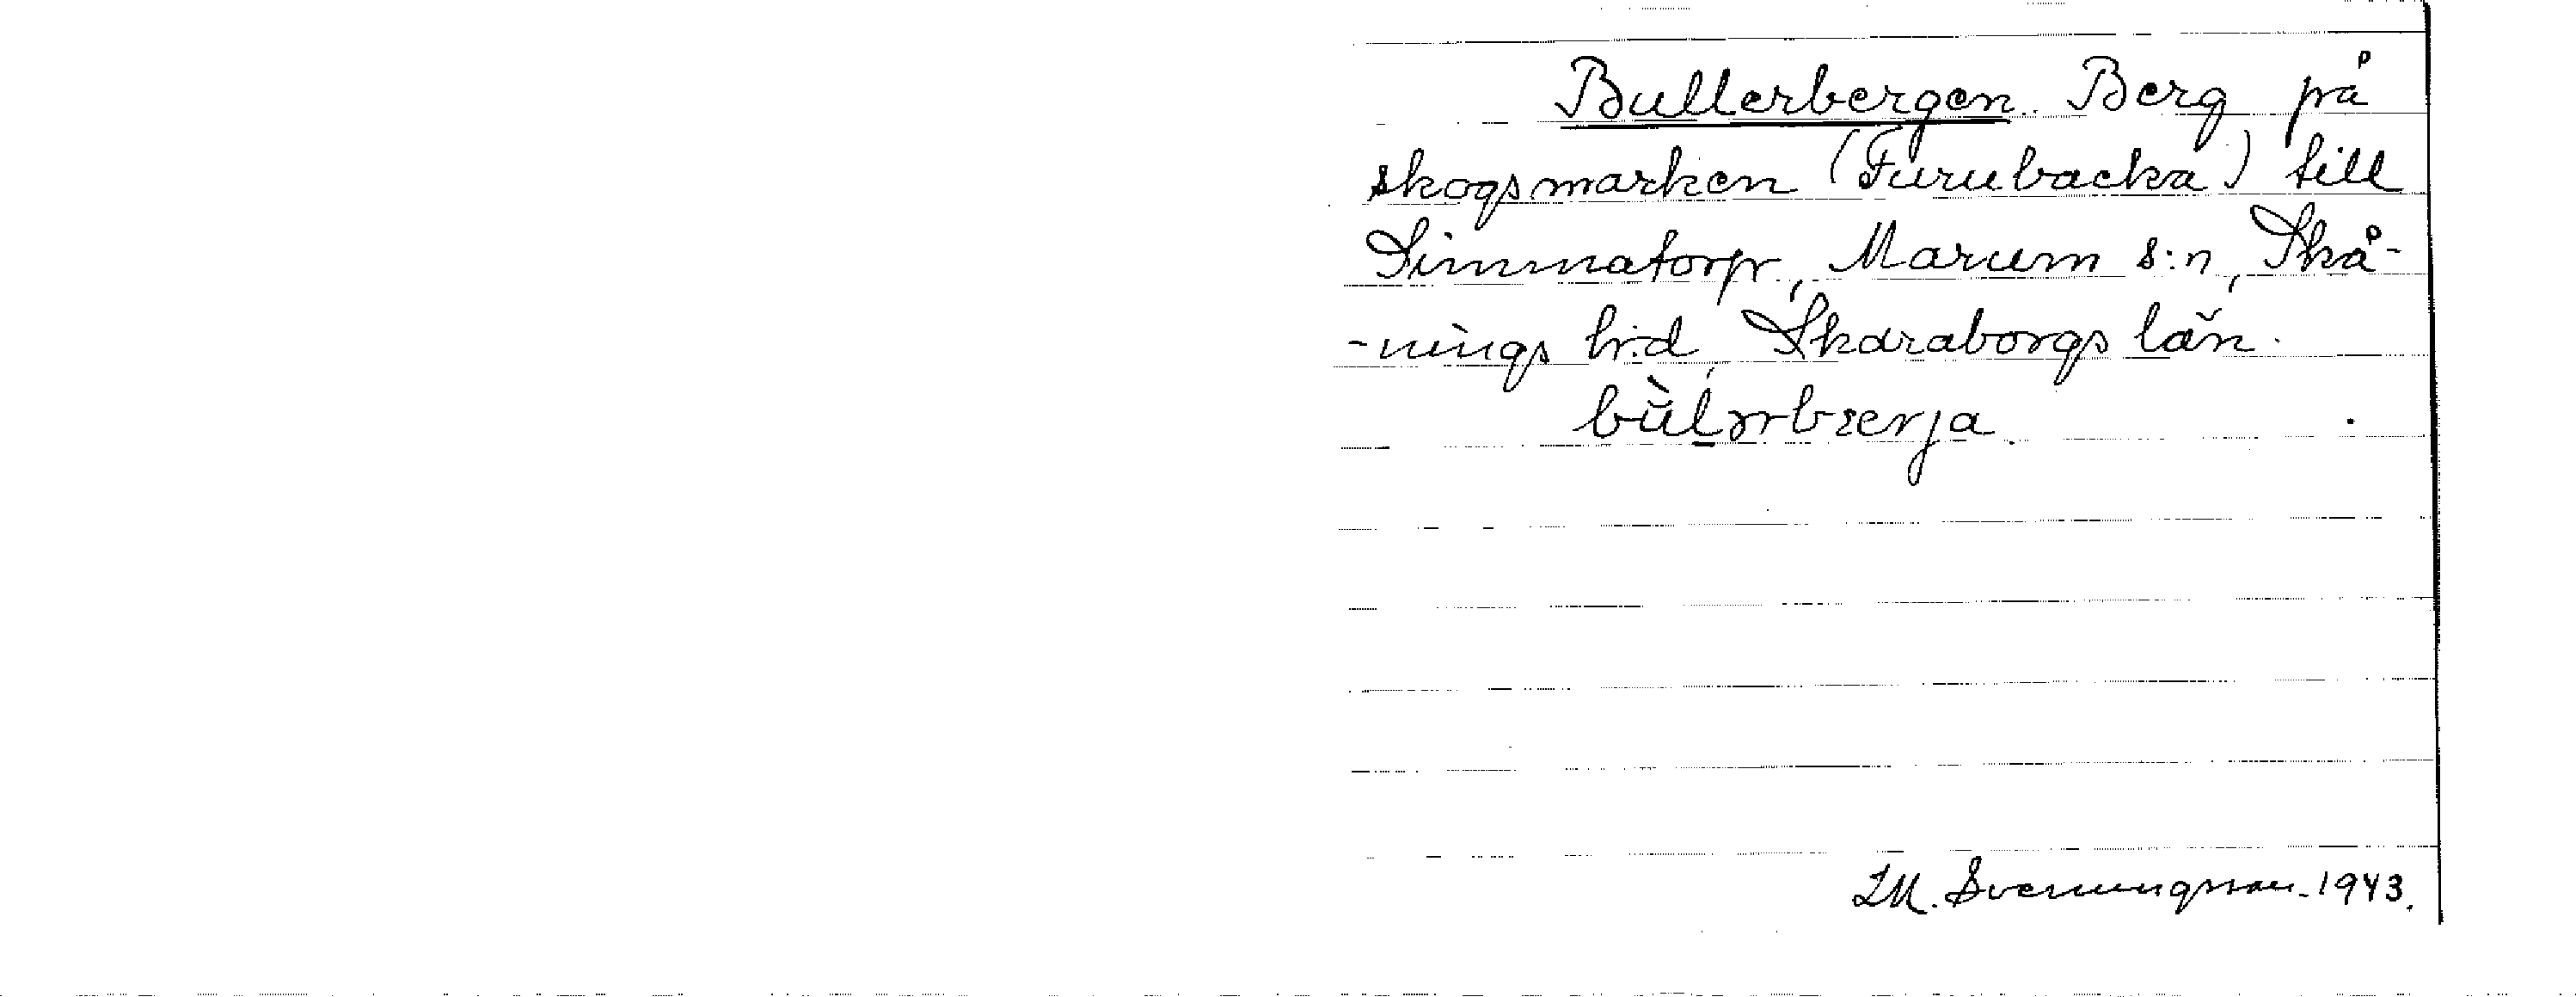 Bullerbergen. Berg på
skogsmarken (Furubacka) till
Simmatorp, Marum s:n, Skå-
-nings h:d, Skaraborgs län.
bùlərbærja.
I.M. Svenungsson. 1943.